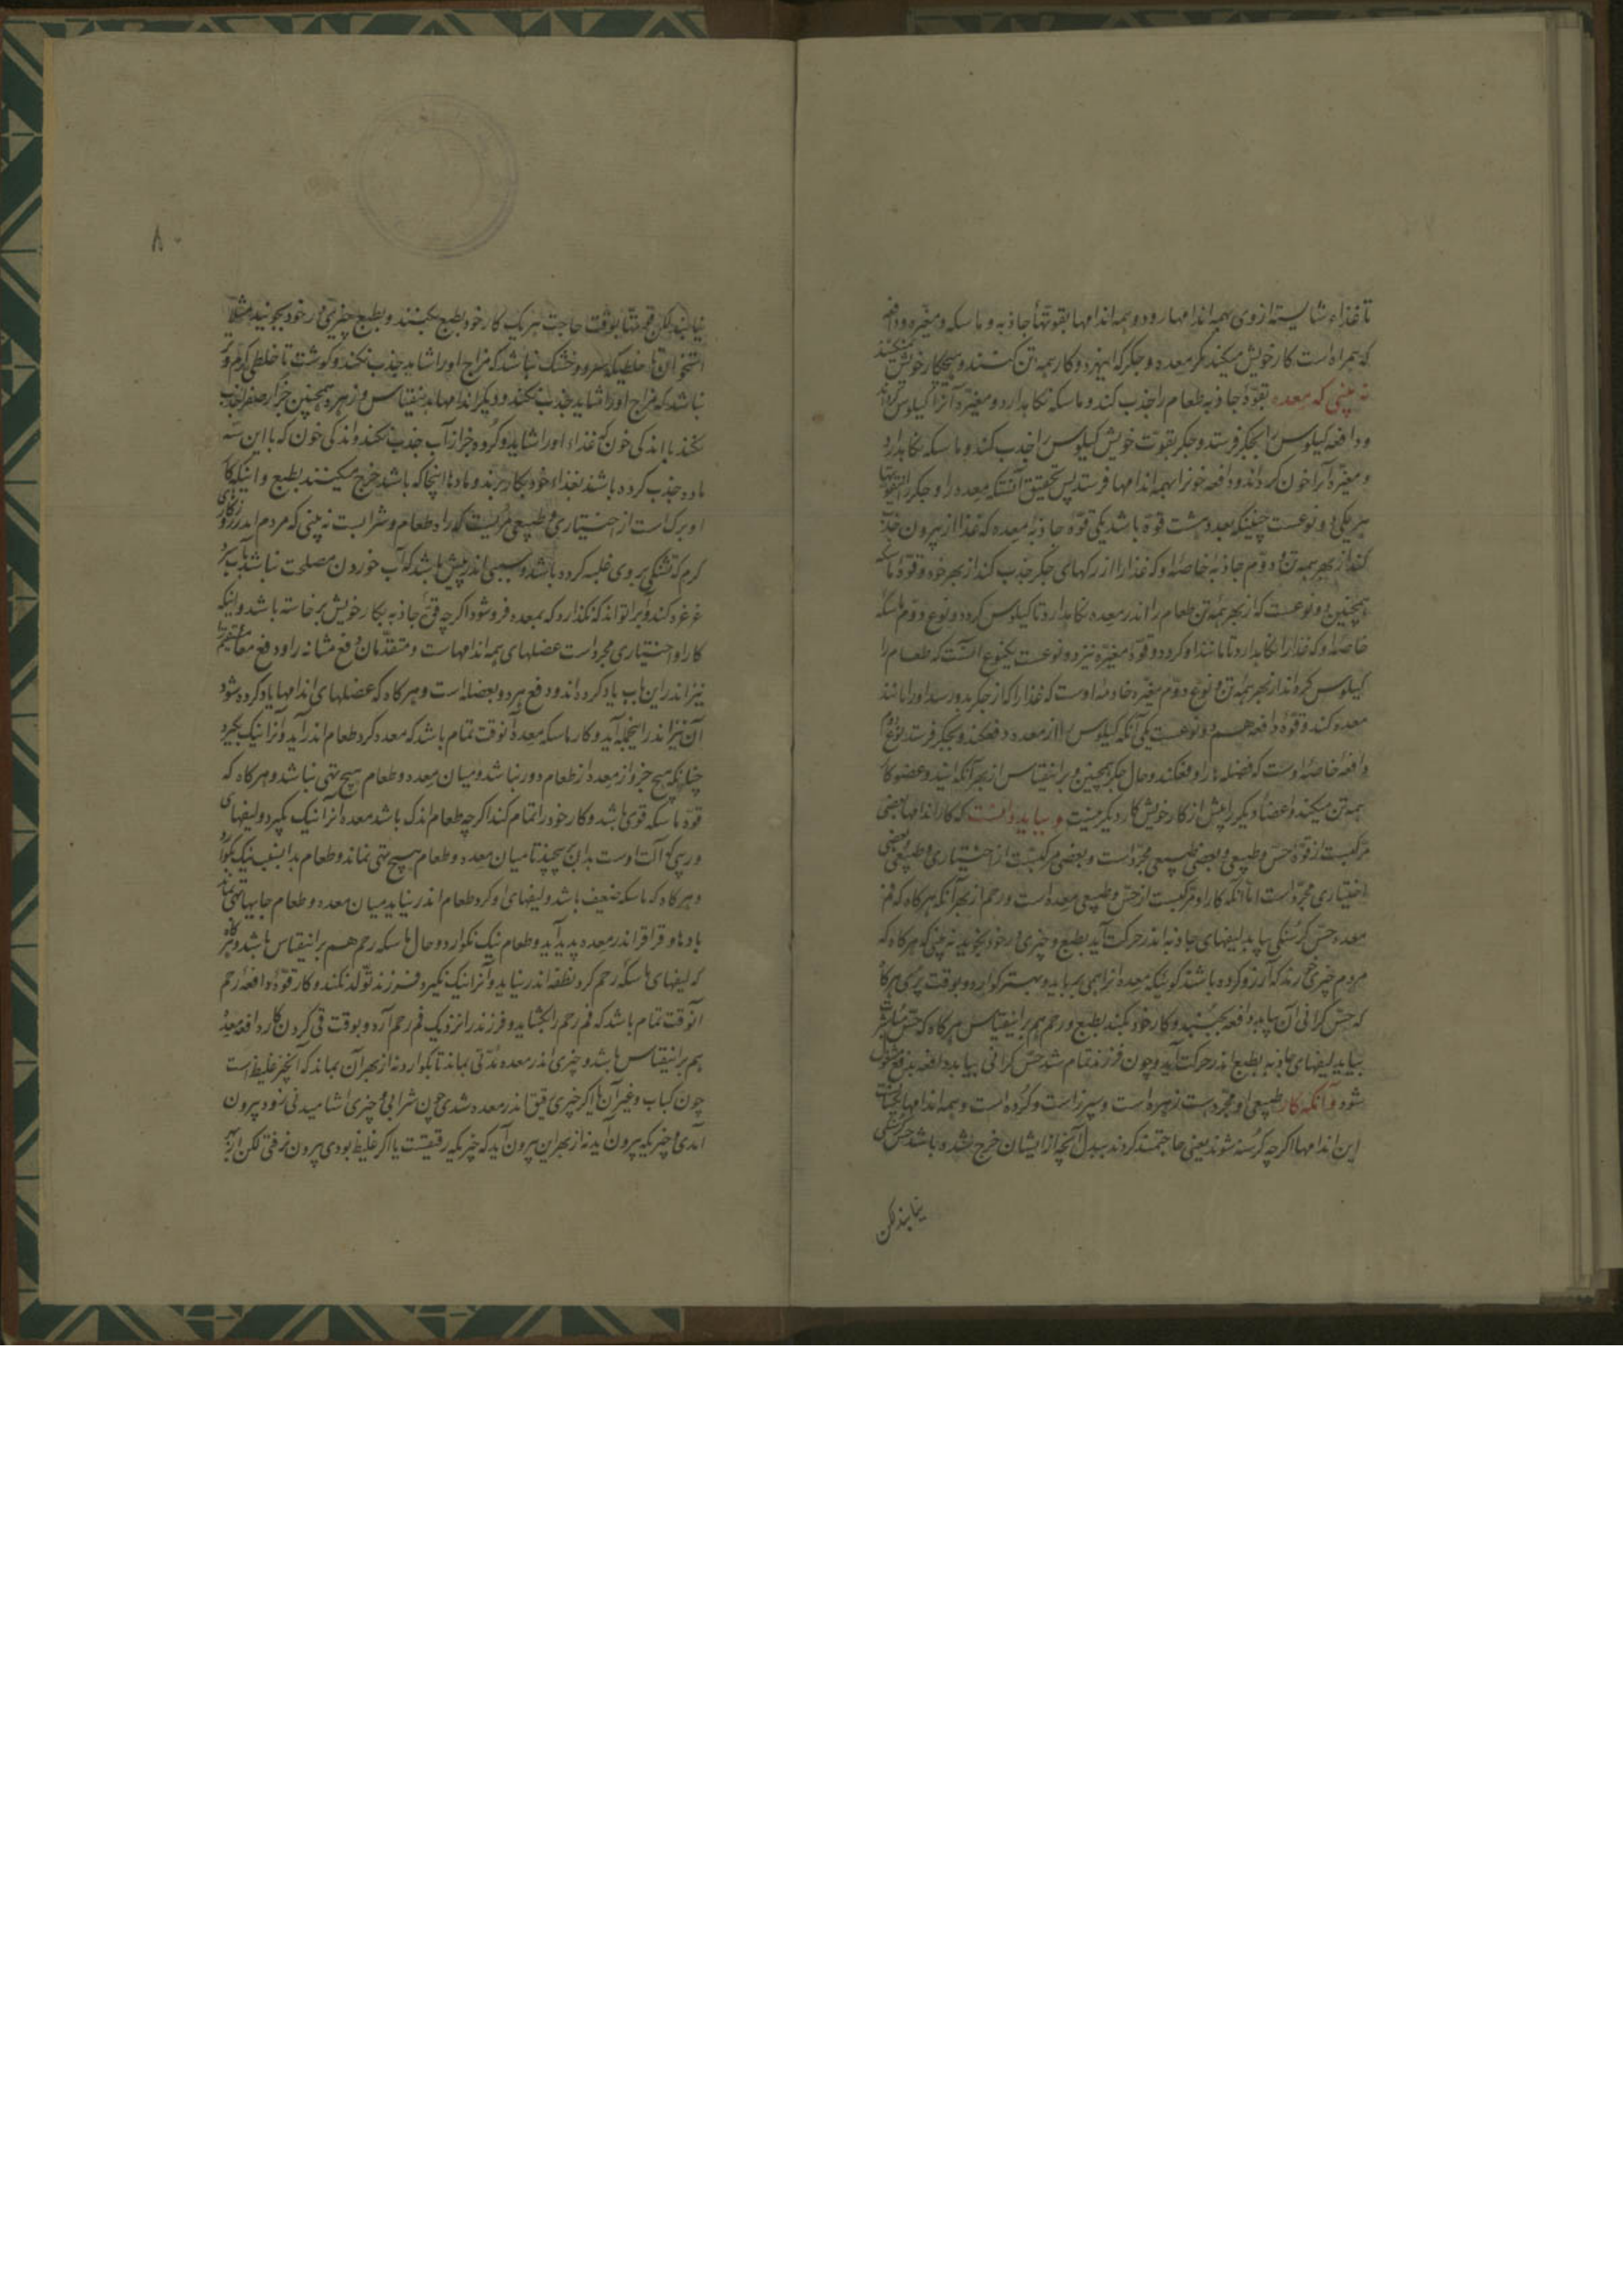 تا غذاء شایسته از وی بهمه اندامها رود و همه اندامها بقوتها جاذبه و ماسکه و مغیّره و دافعه
که همراه است کار خویش میکند مکر معده و جکر که اینهر دو کار همه تن کنند و هیچ کار خویش نمیکنند
نه بینی که معده بقوّة جاذبه طعام را جذب کند و ماسکه نکاه دارد و مغیّره آنرا کیلوس کرداند
و دافعه کیلوس را بجکر فرستد و جکر بقوّت خویش کیلوس را جذب کند و ماسکه نکاه دارد
و مغیّره آنرا خون کرداند و دافعه خون را بهمه اندامها فرستد پس تحقیق آنستکه معده را و جکر را این قوتها
هر یکی دو نوعست چنینکه معده هشت قوّة باشد یکی قوّة جاذبه معده که غذا از بیرون جذب
کند از بهر همه تن و دوّم جاذبه خاصّه او که غذا را از رکهای جکر جذب کند از بهر خود و قوّة ماسکه
همچنین دو نوعست که از بهر همه تن طعام را اندر معده نکاه دارد تا کیلوس کردد و نوع دوّم ماسکه
خاصّه او که غذا را نکاه دارد تا مانند او کردد و قوّة مغیّره نیز دو نوعست یکنوع آنست که طعام را
کیلوس کرداند از بهر همه تن و نوع دوّم مغیّره خاصّه اوست که غذا را که از جکر بدو رسد او را مانند
معده کند و قوّة دافعه هم دو نوعست یکی آنکه کیلوس را از معده دفع کند و بجکر فرستد نوع دوم
دافعه خاصّه اوست که فضله ها را دفع کند و حال جکر همچنین و بر اینقیاس از بهر آنکه ایندو عضو کار
همه تن میکنند و اعضاء دیکر را بیش از کار خویش کار دیکر نیست و بباید دانست که کار اندامها بعضی
مرکبست از قوّة حسّ و طبیعی و بعضی طبیعی مجرّد است و بعضی مرکبست از اختیاری و طبیعی و بعضی
اختیاری مجرّد است امّا آنکه کار او مرکبست از حسّ و طبیعی معده است و رحم از بهر آنکه هرکاه که فم
معده حسّ کرسنکی بیابد لیفهای جاذبه اندر حرکت آید بطبع و چیزی در خود بجوید نه بینی که هرکاه که
مردم چیزی خورند که آرزو کرده باشند کوئیکه معده آنرا همی رباید و بهتر کوارد و بوقت پری هرکاه
که حسّ کرانی آن بیابد دافعه بجنبد و کار خود بکند بطبع و رحم هم بر اینقیاس هرکاه که حسّ مباشرت
بیابد لیفهای جاذبه بطبع اندر حرکت آید و چون فرزند تمام شد حسّ کرانی بیابد دافعه بدفع مشغول
شود و آنکه کار طبیعی او مجرّدست زهره است و سپرز است و کرده است و همه اندامها بجملت
این اندامها اکرچه کرسنه شوند یعنی حاجتمند کردند ببدل آنچه از ایشان خرج شده باشد حسّ کرسنکی
نیابند لکن
نیابند لکن بوقت حاجت هر یک کار خود بطبع بکنند و بطبع چیزی در خود بجویند مثلا
استخوان تا خلطیکه سرد و خشک نباشد که مزاج او را شاید جذب نکند و کوشت تا خلطی کرم و تر
نباشد که مزاج او را شاید جذب نکند و دیکر اندامها بر اینقیاس و زهره همچنین جز از صفرا جذب
نکند با اندکی خون که غذاء او را شاید و کرده جز از آب جذب نکند و اندکی خون که با این سه
ماده جذب کرده باشند بغذاء خود بکار برند و ماده را آنجا که باشد خرج میکنند بطبع و اینکه کار
او مرکب است از اختیاری و طبیعی مریست که راه طعام و شرابست نه بینی که مردم اندر روزکاری
کرم که تشنکی بر وی غلبه کرده باشد و سببی اندر پیش باشد که آب خوردن مصلحت نباشد آب سرد
غرغره کند و بر تواند که نکذارد که بمعده فرو شود اکرچه قوّة جاذبه بکار خویش برخاسته باشد و اینکه
کار او اختیاری مجرد است عضلهای همه اندامهاست و متقدّمان دفع مثانه را و دفع معاء مستقیم را
نیز اندر این باب یاد کرده اند و دفع هر دو بعضله است و هرکاه که عضلهای اندامها یاد کرده شود
آن نیز اندر این جمله آید و کار ماسکه معده آنوقت تمام باشد که معده کرد طعام اندر آید و آنرا نیک بکیرد
چنانکه هیچ جزو از معده از طعام دور نباشد و میان معده و طعام هیچ تهی نباشد و هرکاه که
قوّة ماسکه قوی باشد و کار خود را تمام کند اکرچه طعام اندک باشد معده آنرا نیک بکیرد و لیفهای
وربی که آلت اوست بدان بپیچد تا میان معده و طعام هیچ تهی نماند و طعام بدانسبب نیک بکوارد
و هرکاه که ماسکه ضعیف باشد و لیفهای او کرد طعام اندر نیاید میان معده و طعام جایها تهی بماند
بادها و قراقر اندر معده پدید آید و طعام نیک نکوارد و حال ماسکه رحم هم بر اینقیاس باشد و هرکاه
که لیفهای ماسکه رحم کرد نطفه اندر نیاید و آنرا نیک نکیرد فرزند تولّد نکند و کار قوّة دافعه رحم
آنوقت تمام باشد که فم رحم را بکشاید و فرزند را نزدیک فم رحم آرد و بوقت قی کردن کار دافعه معده
هم بر اینقیاس باشد و چیزی اندر معده مدّتی بماند تا بکوارد نه از بهر آن بماند که آنچیز غلیظ است
چون کباب و غیر آن یا اکر چیزی رقیق اندر معده شدی چون شرابی و چیزی آشامیدنی زود بیرون
آمدی و چیزیکه بیرون آید نه از بهر این بیرون آید که چیزیکه رقیقست یا اکر غلیظ بودی بیرون نرفتی لکن از بهر